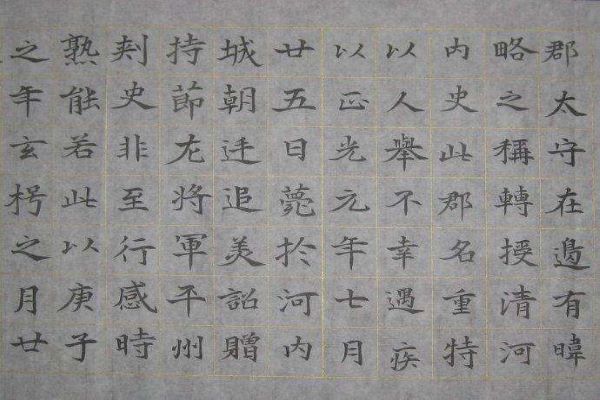 郡太守在邊有暐
略之稱轉授清河
內史此郡名重特
以人舉不幸遇疾
以正光元年七月
廿五日薨於河內
城朝廷追美詔贈
持節左將軍平州
刾史非至行感時
熟能若此以庚子
之年玄枵之月廿